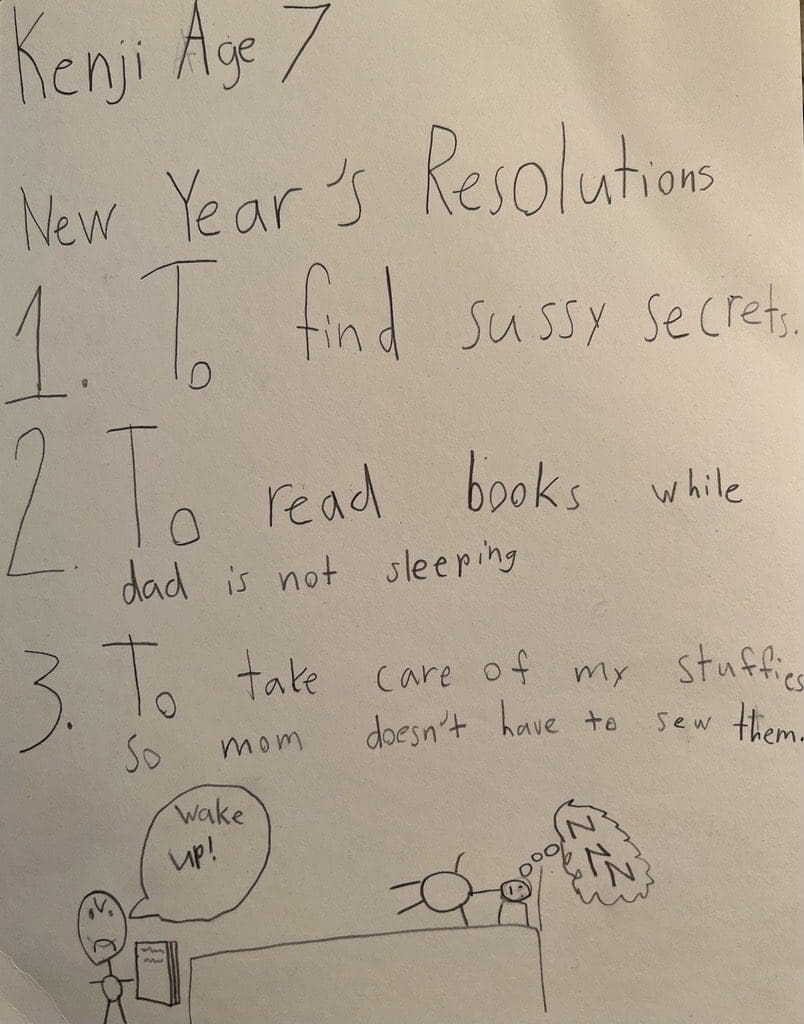 Kenji Age 7
New Year's Resolutions
1. To find sussy secrets.
2. To read books while
dad is not sleeping
3. To take care of my stuffies
so mom doesn't have to sew them.
Wake
up!
ZZZ